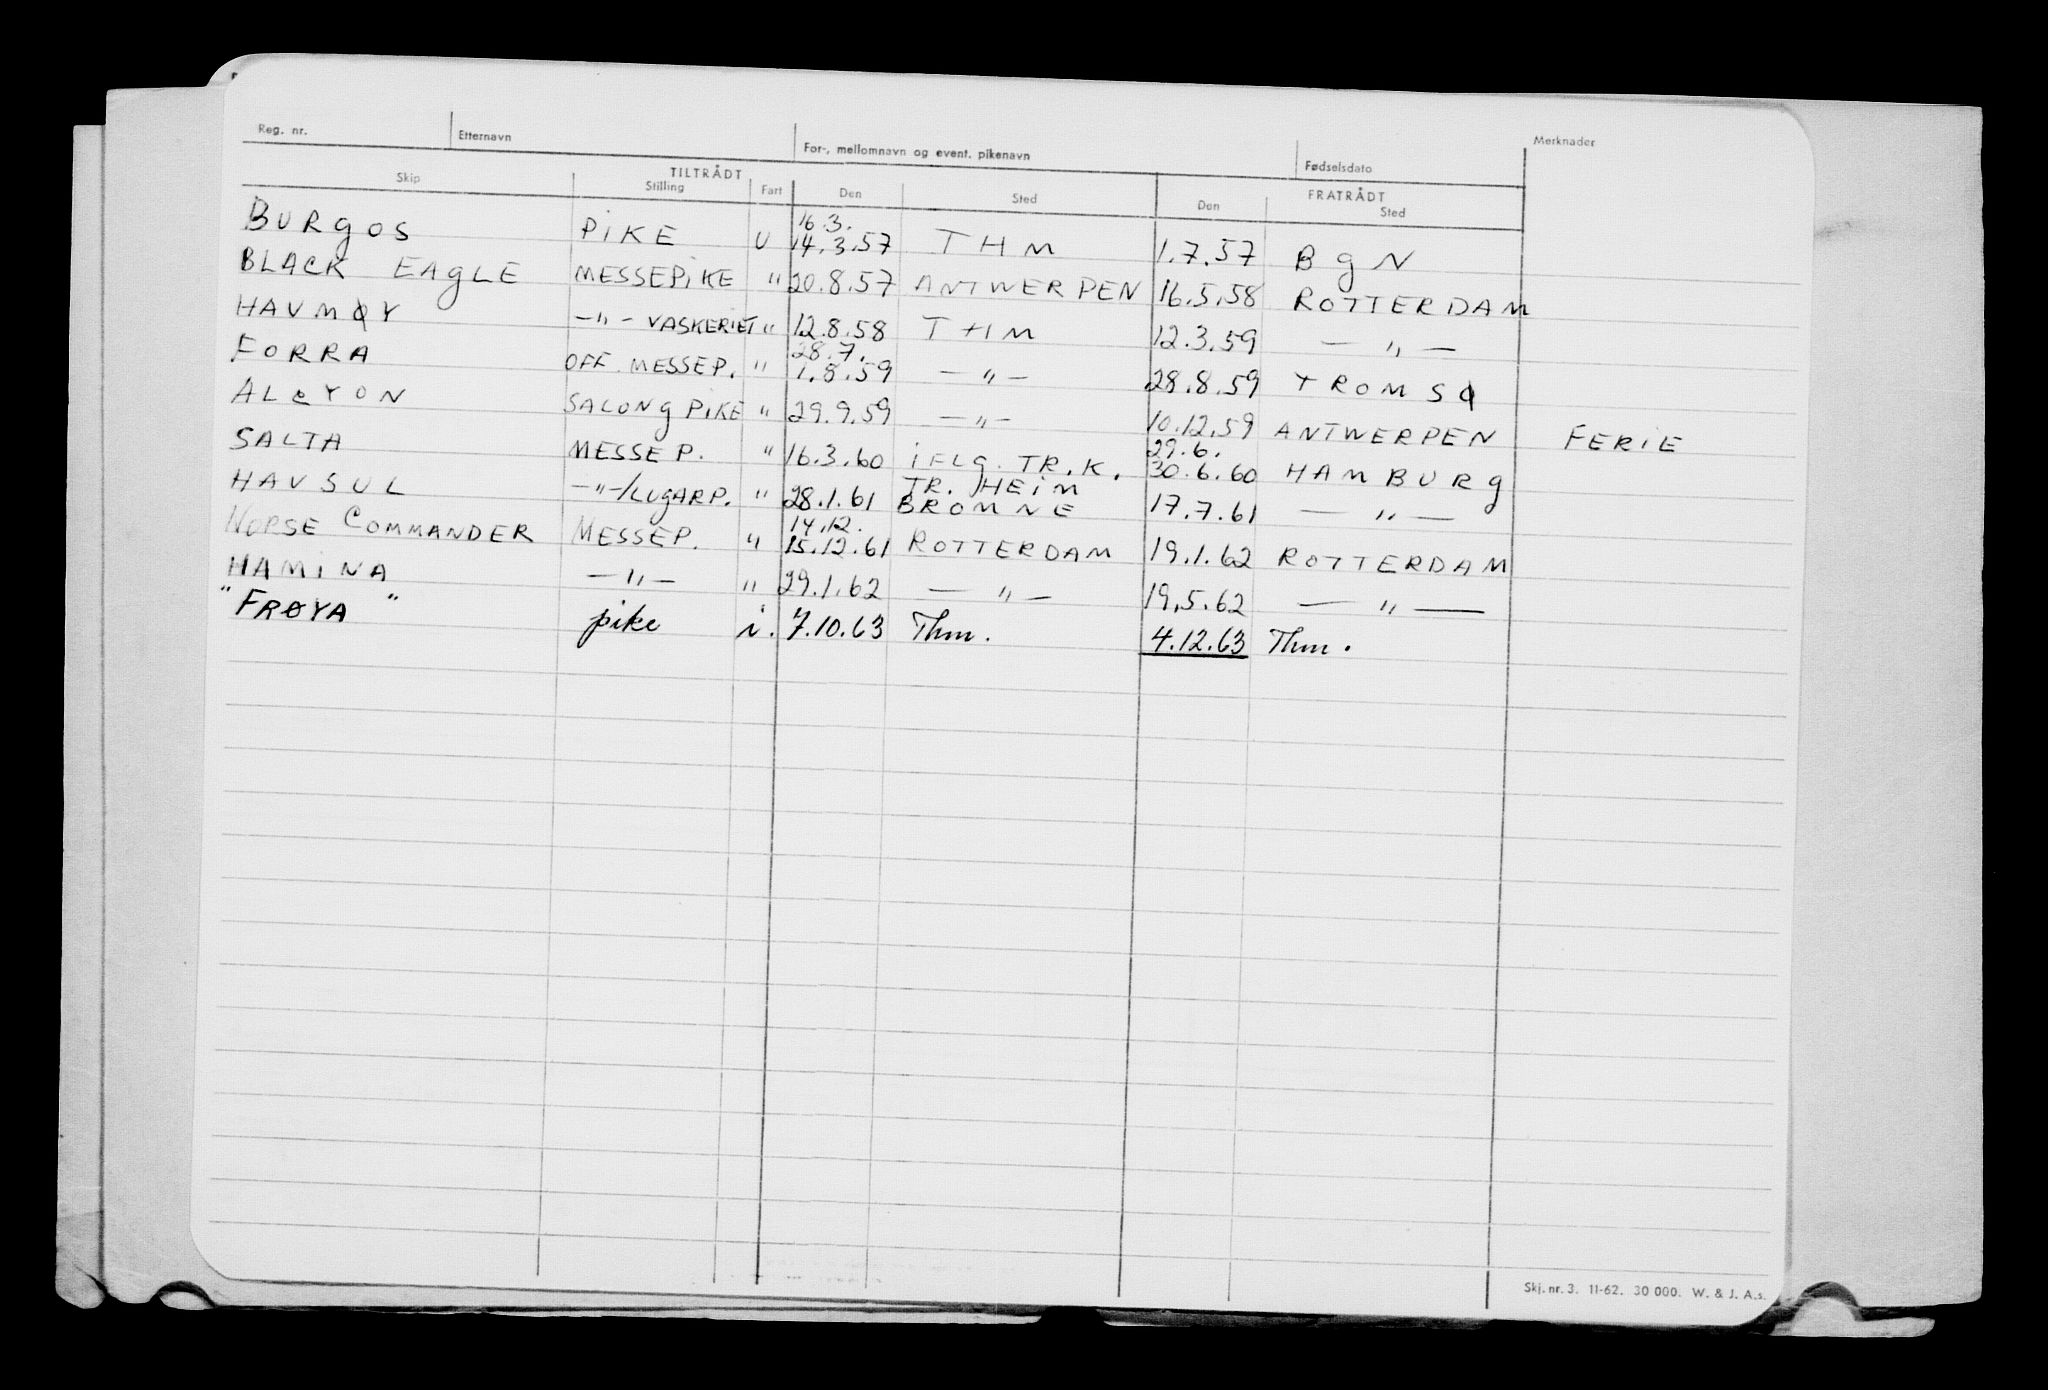 Reg. nr. Etternavn For-, mellomnavn og event. pikenavn Fødselsdato Merknader
TILTRÅDT FRATRÅDT
Skip Stilling Fart Den Sted Den Sted
16.3.
BURGOS PIKE U 14.3.57 THM 1.7.57 BGN
BLACK EAGLE MESSEPIKE " 20.8.57 ANTWERPEN 16.5.58 ROTTERDAM
HAVMØY —"— VASKERIET " 12.8.58 THM 12.3.59 — " —
28.7.
FORRA OFF. MESSEP. " 1.8.59 — " — 28.8.59 TROMSØ
ALCYON SALONGPIKE " 29.9.59 — " — 10.12.59 ANTWERPEN FERIE
29.6.
SALTA MESSEP. " 16.3.60 IFLG. TR.K. 30.6.60 HAMBURG
TR. HEIM
HAVSUL —"—/LUGARP. " 28.1.61 BROMNE 17.7.61 — " —
14.12.
NORSE COMMANDER MESSEP. " 15.12.61 ROTTERDAM 19.1.62 ROTTERDAM
HAMINA — " — " 29.1.62 — " — 19.5.62 — " —
"FRØYA" pike i. 7.10.63 Thm. 4.12.63 Thm.
Skj. nr. 3. 11-62. 30 000. W. & J. A.s.